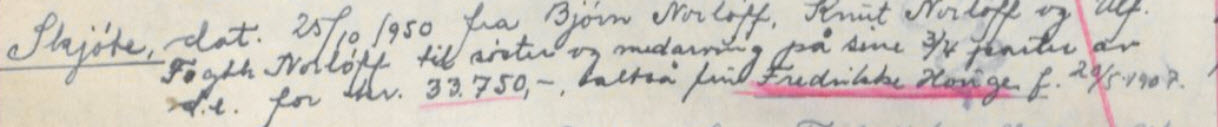 Skjöte, dat. 25/10 1950 fra Björn Norløff, Knut Norløff og Ulf.
Fogth Norløff til søster og medarving på sine 3/4 parter av
d.e. for kr. 33.750,-, altså frue Fredrikke Hauge f. 20/5.1907.